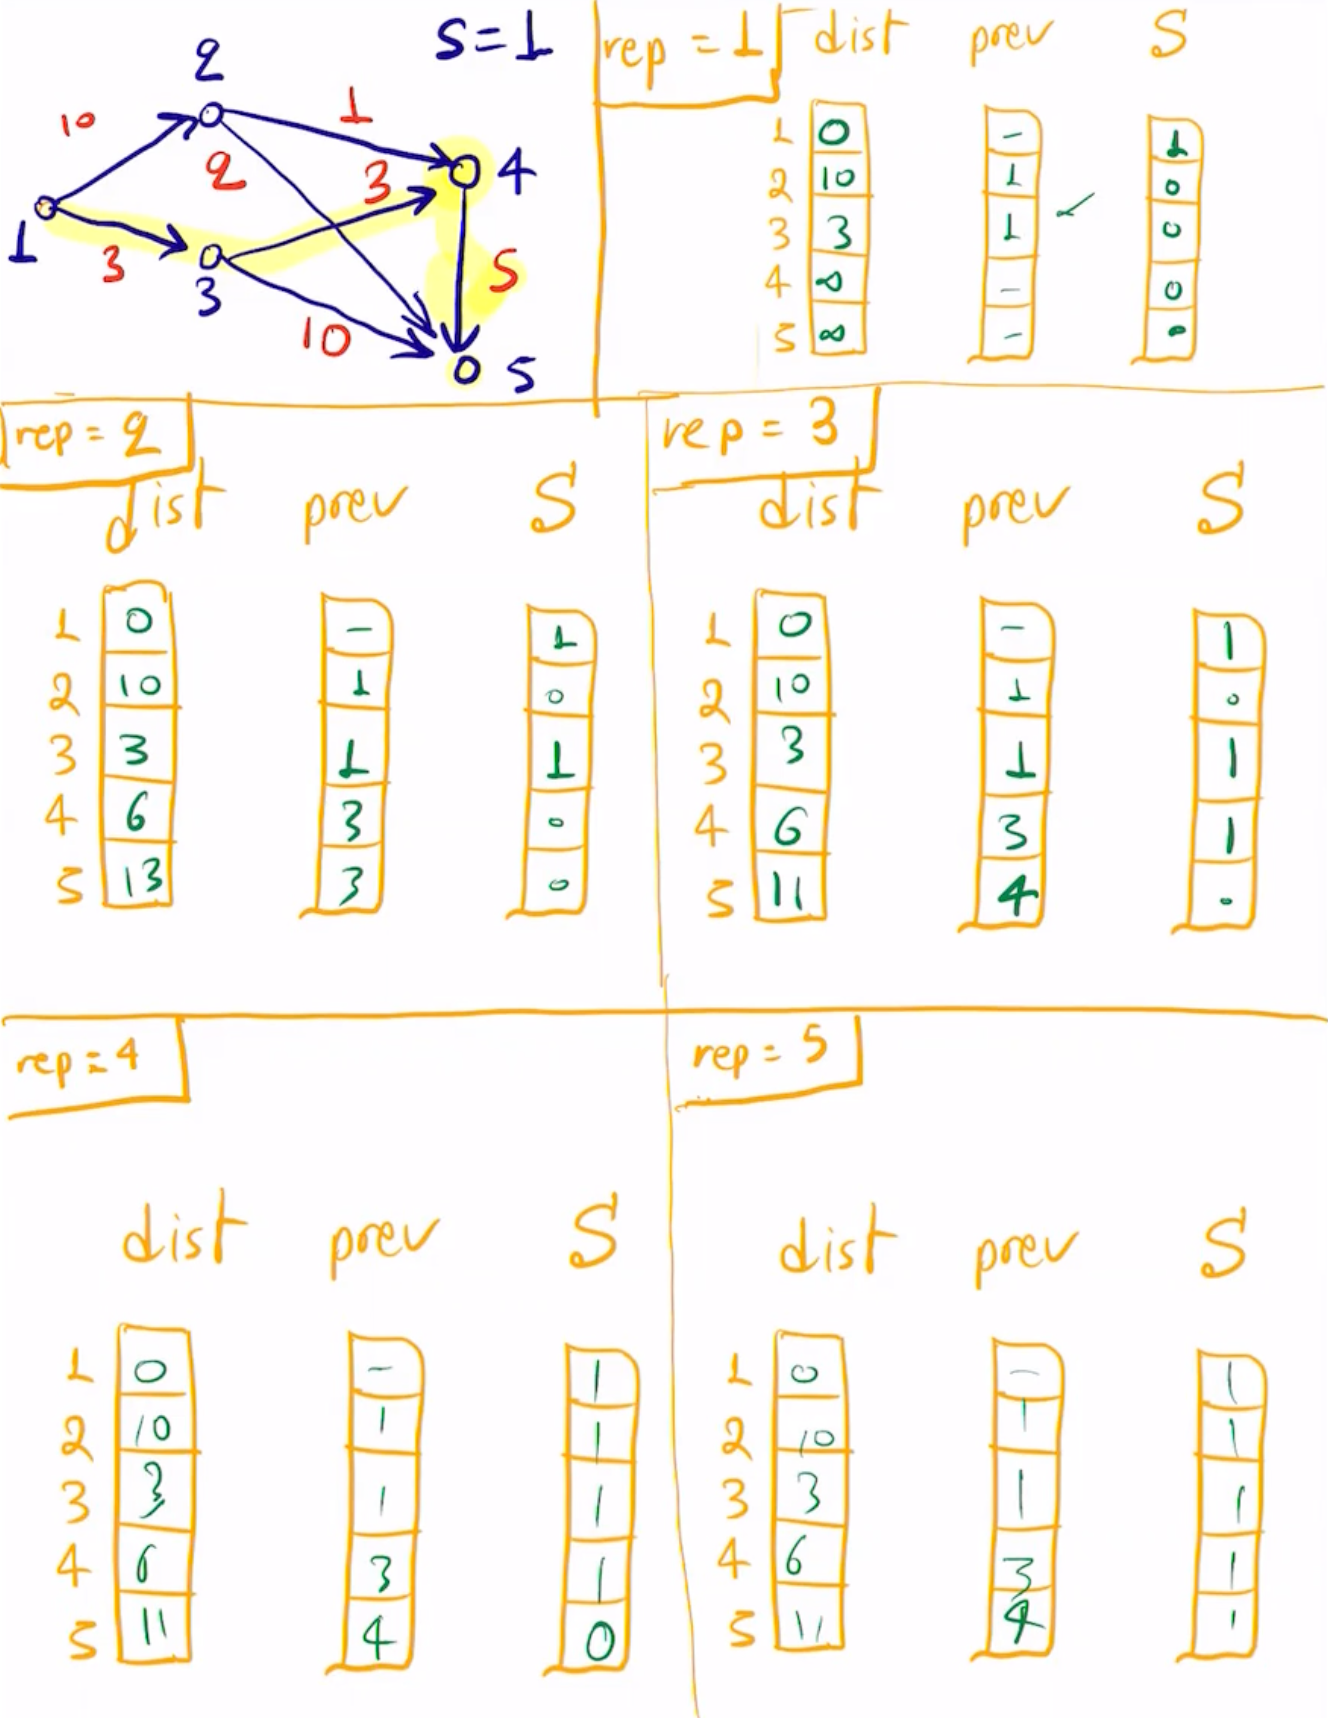 S=1
2
10
1
2
3
4
1
3
3
5
10
5
rep = 1
dist prev S
1 0 - 1
2 10 1 0
3 3 1 0
4 ∞ - 0
5 ∞ - 0
rep = 2
dist prev S
1 0 - 1
2 10 1 0
3 3 1 1
4 6 3 0
5 13 3 0
rep = 3
dist prev S
1 0 - 1
2 10 1 0
3 3 1 1
4 6 3 1
5 11 4 0
rep = 4
dist prev S
1 0 - 1
2 10 1 1
3 3 1 1
4 6 3 1
5 11 4 0
rep = 5
dist prev S
1 0 - 1
2 10 1 1
3 3 1 1
4 6 3 1
5 11 4 1